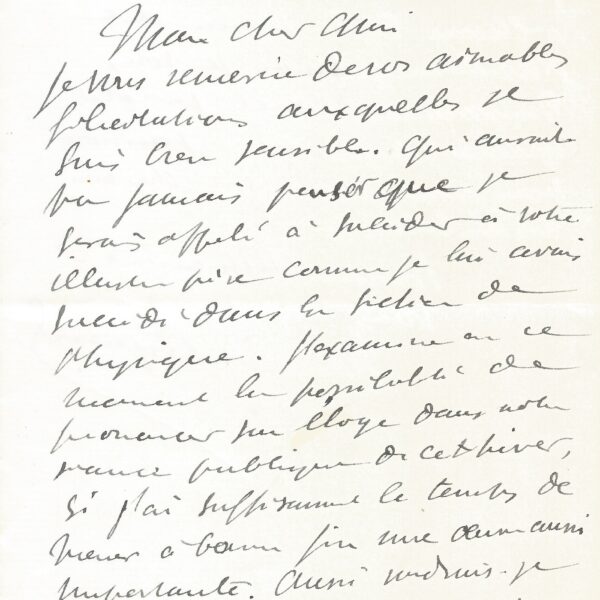 Mon cher Ami
Je vous remercie de vos aimables
félicitations auxquelles je
suis bien sensible. Qui aurait
pu jamais penser que je
serais appelé à succéder à votre
illustre père comme je lui avais
succédé dans la section de
physique. J'examine en ce
moment la possibilité de
prononcer son éloge dans notre
séance publique de cet hiver,
si j'ai suffisamment le temps de
mener à bonne fin une œuvre aussi
importante. Aussi voudrais-je